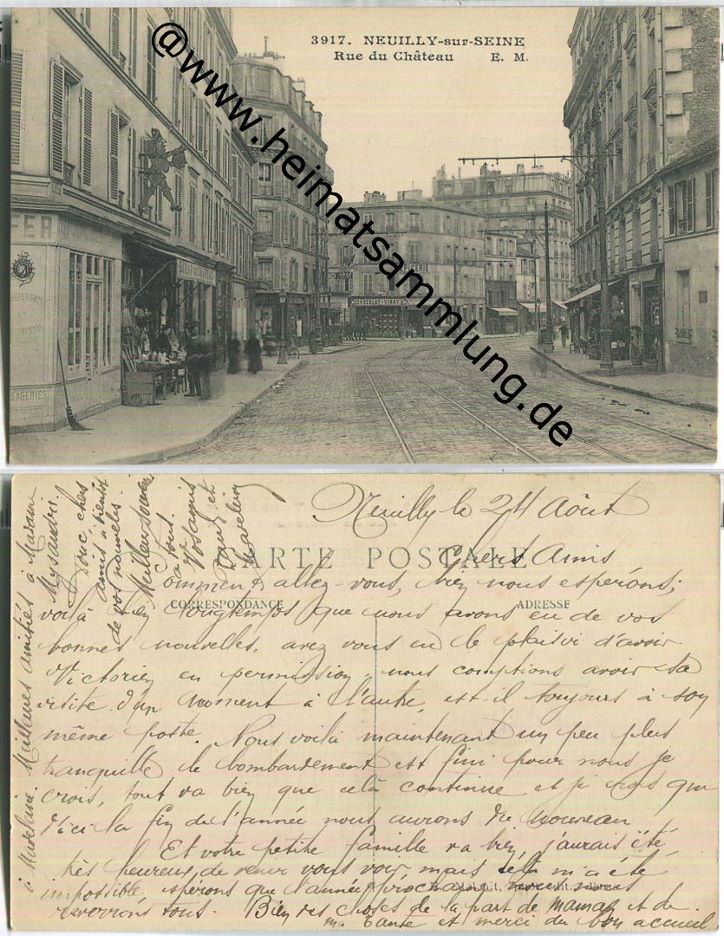 3917. NEUILLY-sur-SEINE
Rue du Château E. M.
@www.heimatsammlung.de
Neuilly le 24 Août
Chers Amis
CARTE POSTALE
Comment allez-vous, bien nous espérons,
CORRESPONDANCE
ADRESSE
voilà bien longtemps que nous avons eu de vos
bonnes nouvelles, avez vous eu le plaisir d'avoir
Victorien en permission, nous comptions avoir sa
visite d'un moment à l'autre, est-il toujours à son
même poste. Nous voilà maintenant un peu plus
tranquille le bombardement est fini pour nous je
crois, tout va bien que celà continue et je crois que
d'ici la fin de l'année nous aurons du nouveau
Et votre petite famille va bien, j'aurais été
très heureux de venir vous voir, mais celà m'a été
impossible espérons que l'année prochaine nous nous
reverrons tous. Bien des choses de la part de maman et de
ma tante et merci du bon accueil
à Madeleine. Meilleures amitiés à Madame
Donc chers
amis à bientôt
de vos nouvelles.
Meilleur souvenir
à tous.
Vos amis